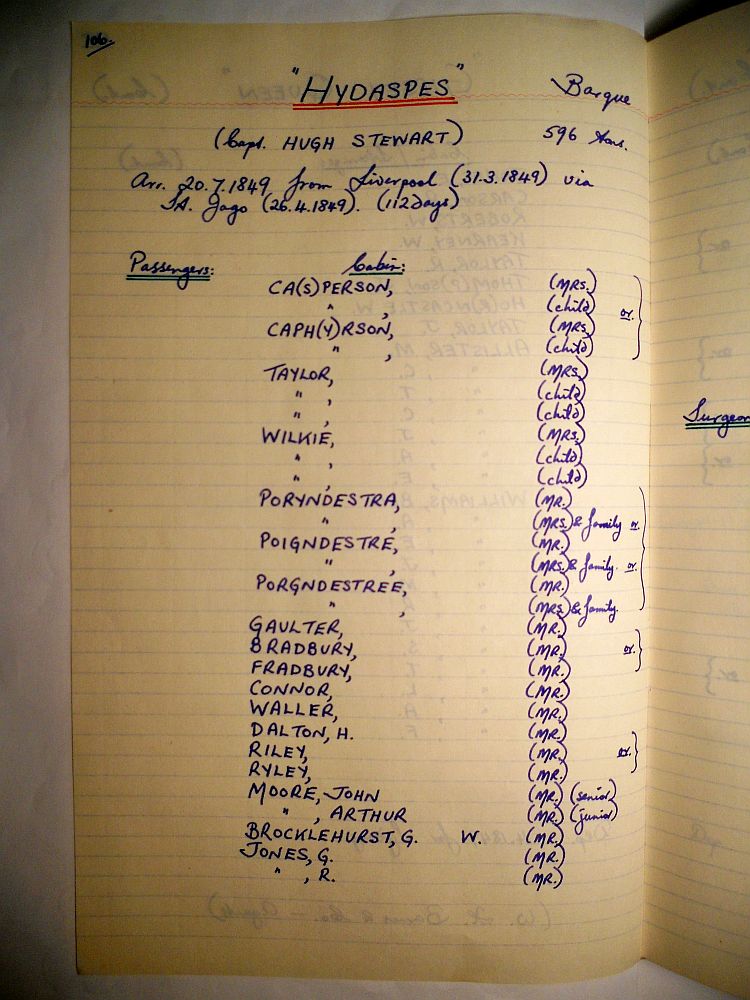 106.
"HYDASPES" Barque
(Capt. HUGH STEWART) 596 tons.
Arr. 20.7.1849 from Liverpool (31.3.1849) via
St. Jago (26.4.1849). (112 days)
Passengers: Cabin:
CA(S)PERSON, (MRS.)
" , (child) or.
CAPH(Y)RSON, (MRS)
" , (child)
TAYLOR, (MRS.)
" , (child)
" , (child)
WILKIE, (MRS.)
" , (child)
" , (child)
PORYNDESTRA, (MR.)
" (MRS.) & family or.
POIGNDESTRE, (MR.)
" (MRS.) & family. or.
PORGNDESTREE, (MR.)
" (MRS.) & family.
GAULTER, (MR.)
BRADBURY, (MR.) or.
FRADBURY, (MR.)
CONNOR, (MR.)
WALLER, (MR.)
DALTON, H. (MR.)
RILEY, (MR.) or.
RYLEY, (MR.)
MOORE, JOHN (MR.) (senior)
" , ARTHUR (MR.) (junior)
BROCKLEHURST, G. W. (MR.)
JONES, G. (MR.)
" , R. (MR.)